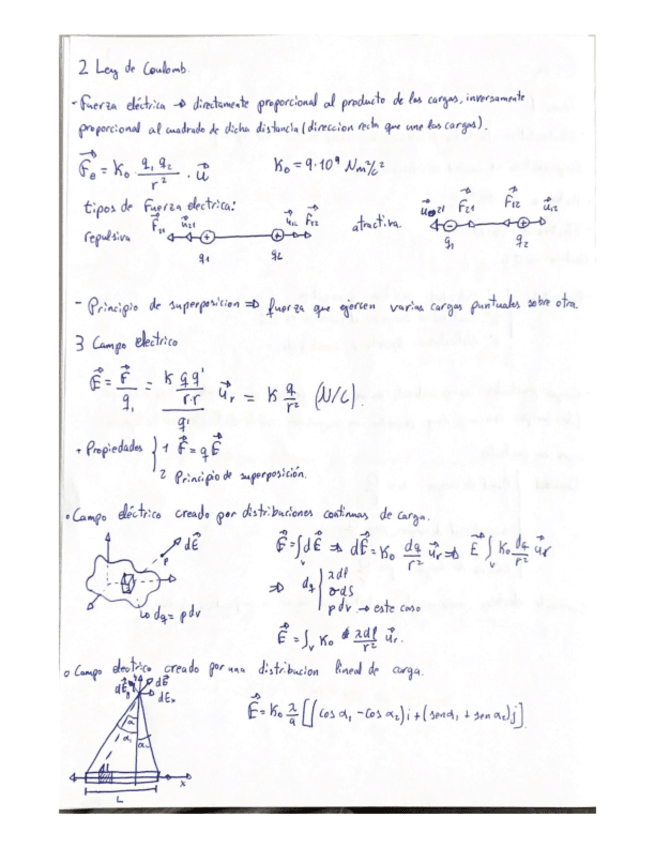 2 Ley de Coulomb.
- Fuerza eléctrica → directamente proporcional al producto de las cargas, inversamente
proporcional al cuadrado de dicha distancia (direccion recta que une las cargas).
F⃗e = K₀ q₁ q₂ / r² · u⃗ K₀ = 9·10⁹ Nm²/c²
tipos de Fuerza electrica:
repulsiva F⃗₂₁ u⃗₂₁ + q₁ + q₂ u⃗₁₂ F⃗₁₂ atractiva. u⃗₂₁ F⃗₂₁ - q₁ + q₂ F⃗₁₂ u⃗₁₂
- Principio de superposicion ⇒ fuerza que ejercen varias cargas puntuales sobre otra.
3 Campo electrico
E⃗ = F⃗ / q₁ = (K q q' / r·r) / q' u⃗r = K q / r² (N/C).
+ Propiedades } 1 F⃗ = q E⃗
2 Principio de superposición.
• Campo eléctrico creado por distribuciones continuas de carga.
dE⃗ P E⃗ = ∫v dE⃗ ⇒ dE⃗ = K₀ dq / r² u⃗r ⇒ E⃗ ∫v K₀ dq / r² u⃗r
⇒ dq { λ dl
σ ds
↳ dq = ρ dv ρ dv → este caso
E⃗ = ∫v K₀ λ dl / r² u⃗r.
o Campo electrico creado por una distribucion lineal de carga.
dE⃗y dE⃗ dEx
E⃗ = K₀ λ / a [(cos α₁ - cos α₂) i + (sen α₁ + sen α₂) j]
α α₁ α₂
x
L